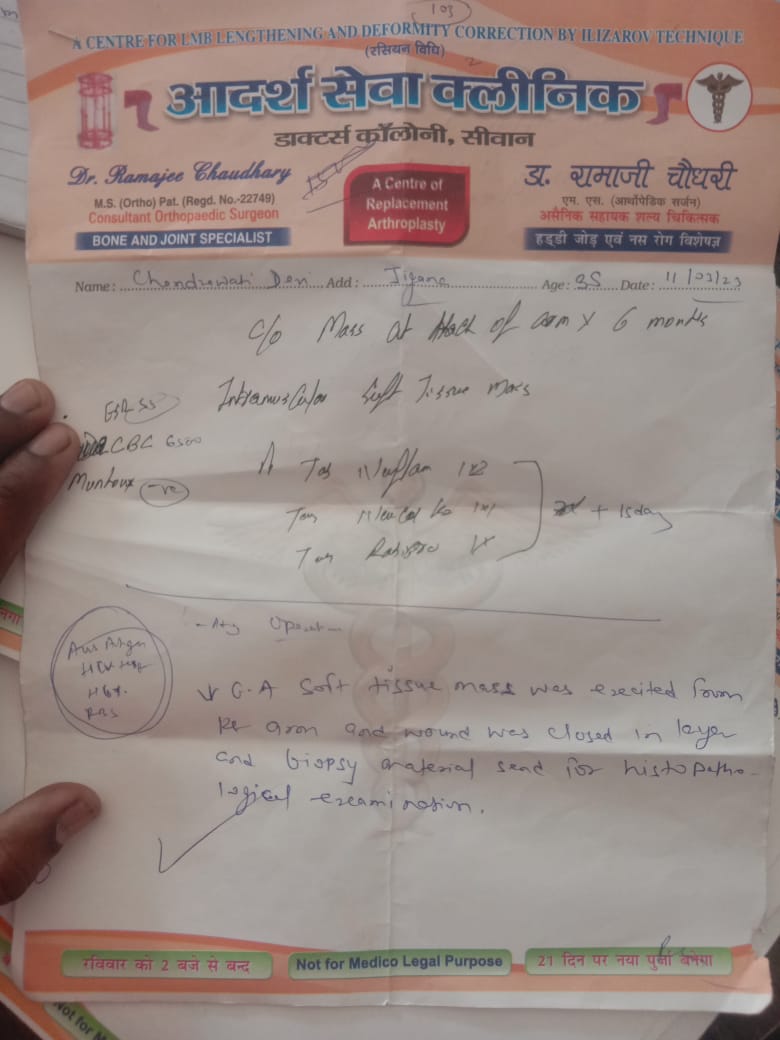 103
A CENTRE FOR LMB LENGTHENING AND DEFORMITY CORRECTION BY ILIZAROV TECHNIQUE
(रसियन विधि)
आदर्श सेवा क्लीनिक
डाक्टर्स कॉलोनी, सीवान
Dr. Ramajee Chaudhary
M.S. (Ortho) Pat. (Regd. No.-22749)
Consultant Orthopaedic Surgeon
BONE AND JOINT SPECIALIST
A Centre of
Replacement
Arthroplasty
डा. रामाजी चौधरी
एम. एस. (आर्थोपेडिक सर्जन)
असैनिक सहायक शल्य चिकित्सक
हड्डी जोड़ एवं नस रोग विशेषज्ञ
Name: Chandrawati Devi Add: Jigana Age: 35 Date: 11/03/23
c/o Mass at of arm x 6 months
Intramuscular Soft Tissue Mass
ESR 55
CBC 6500
Muntoux -ve
Tab 1x2
Tab 1x1
Tab 1x
+ 15 day
HCV
RBS
G.A Soft tissue mass was excited from
Rt arom and wound was closed in layer
and biopsy material send for histopatho-
logical excamination.
रविवार को 2 बजे से बन्द
Not for Medico Legal Purpose
21 दिन पर नया पुर्जा बनेगा
Not for M